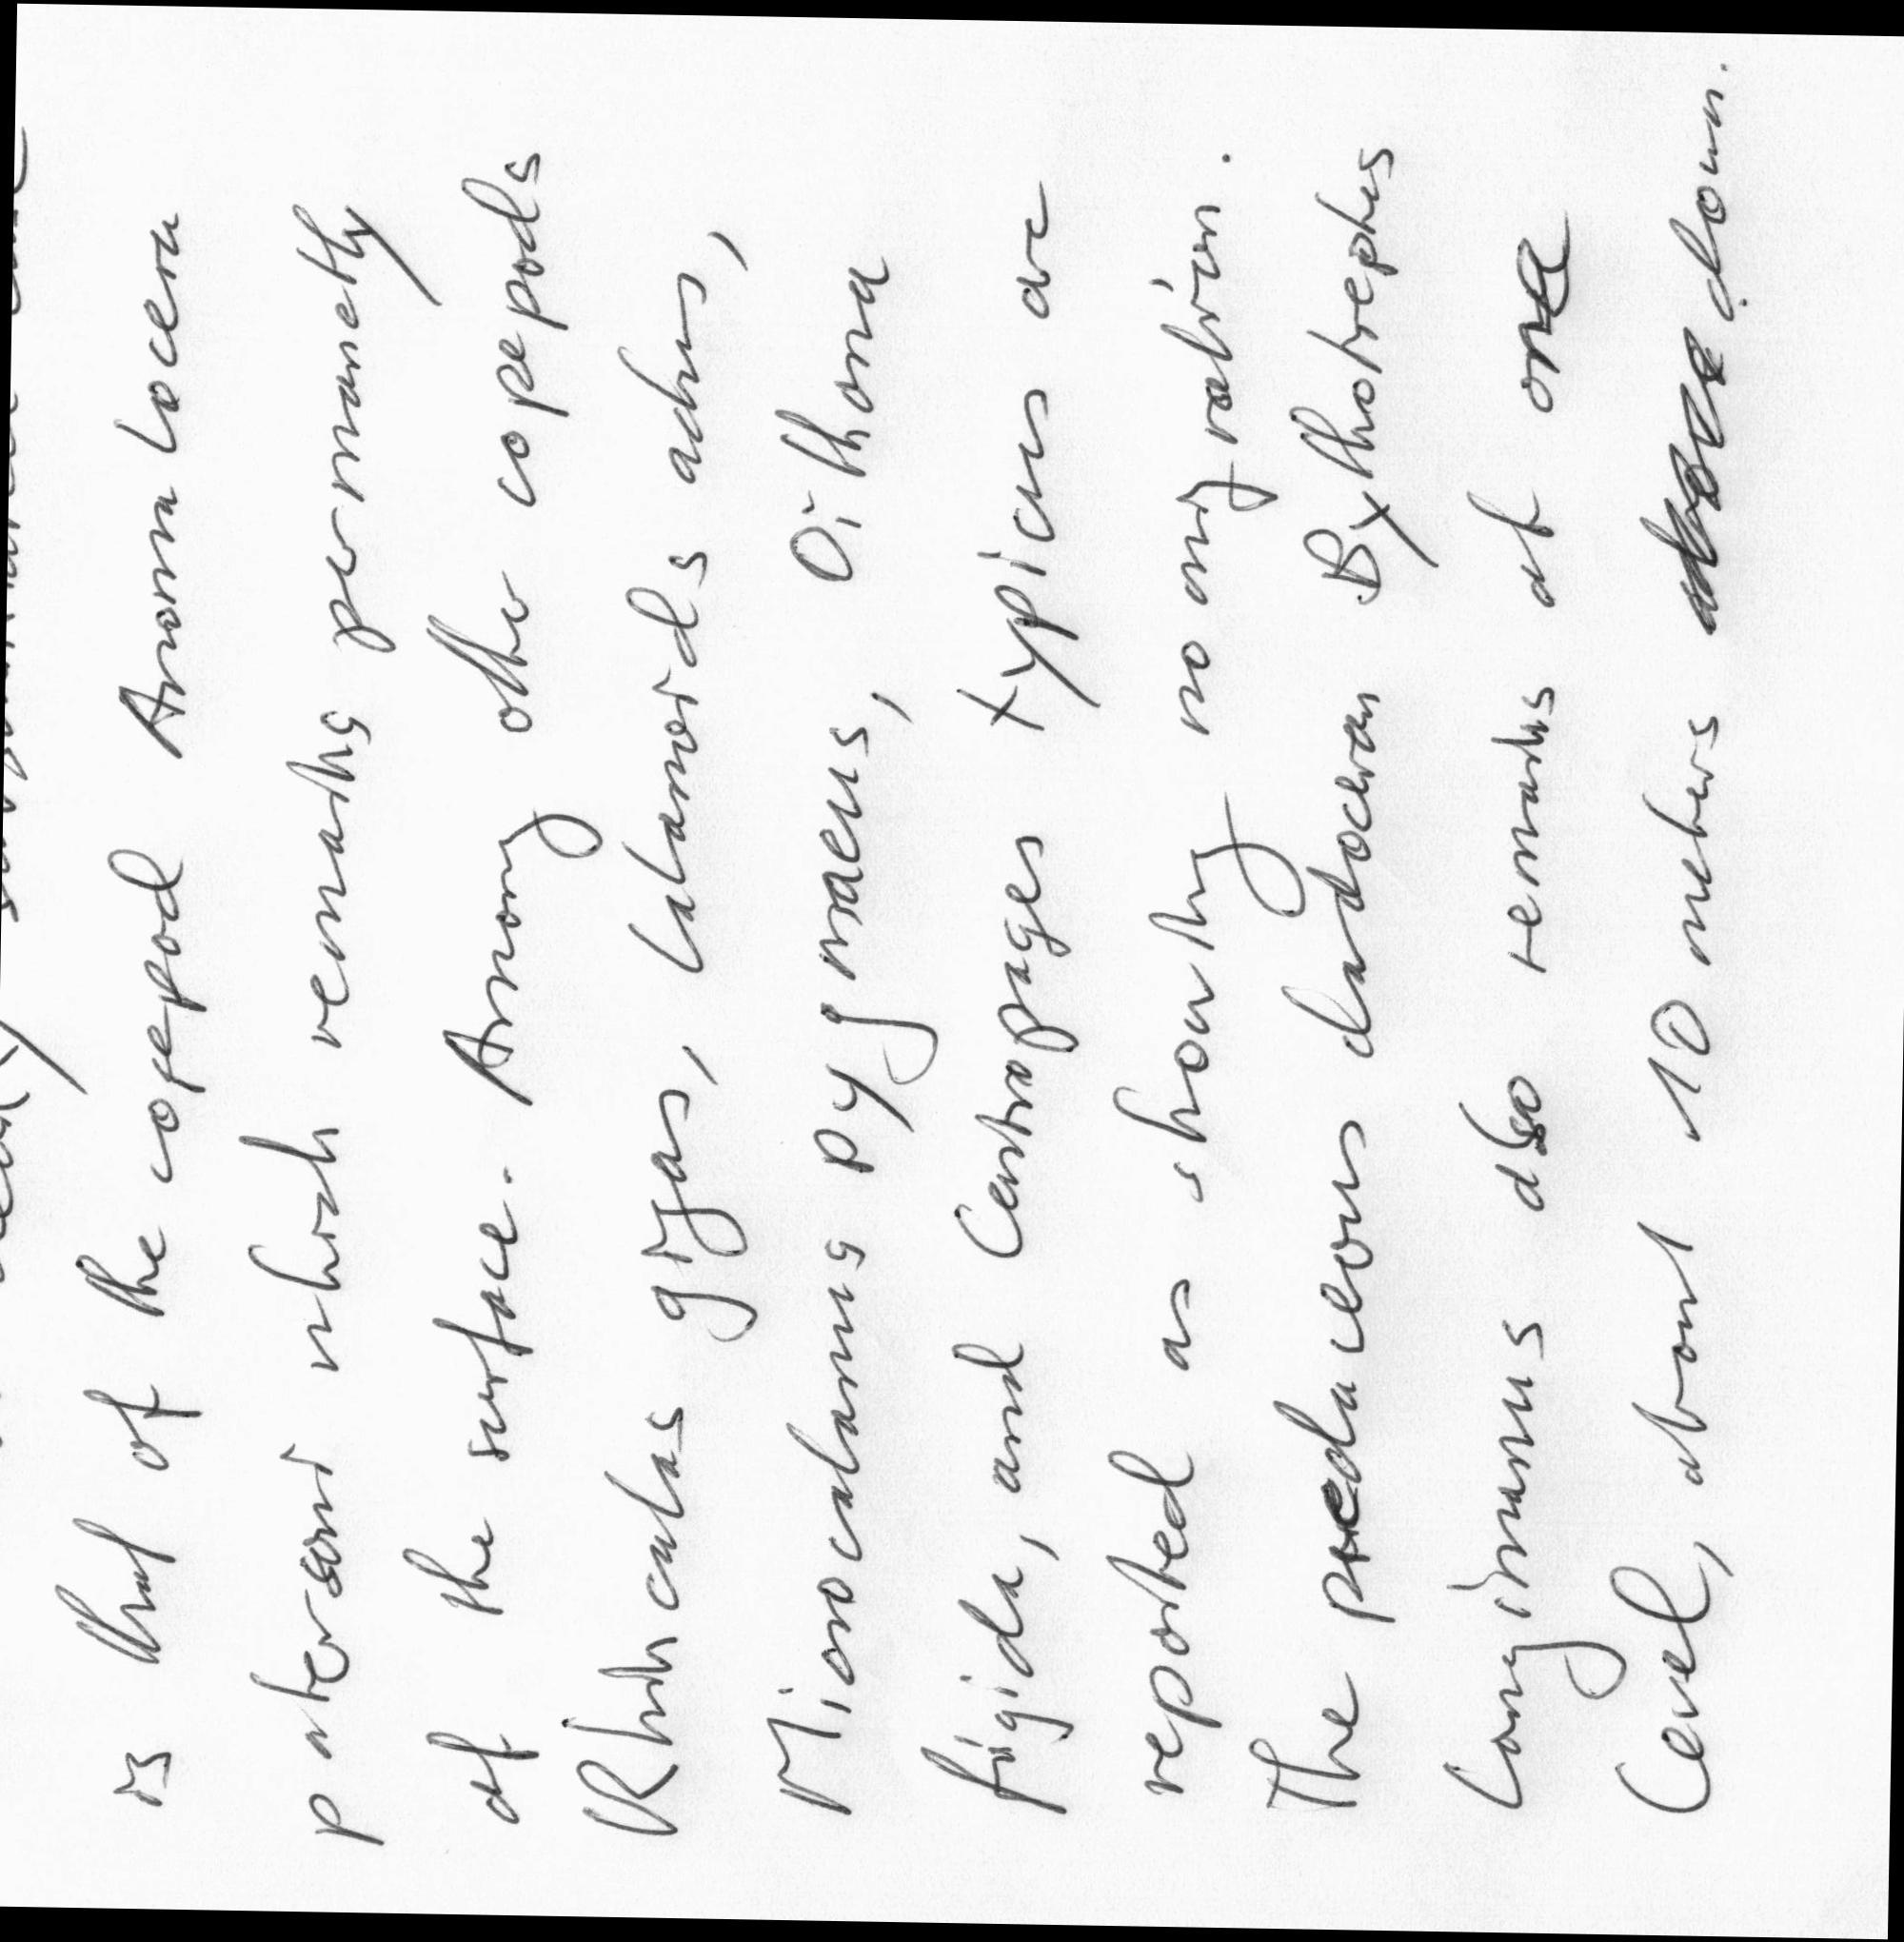 is that of the copepod Anomalocera
patersoni which remains permanently
at the surface. Among other copepods
Rhincalas gigas, Calanoids acutus,
Microcalanus pygmaeus, Oithona
frigida, and Centropages typicus are
reported as showing no migration.
The predaceous cladoceran Bythotrephes
longimanus also remains at one
level, about 10 meters down.